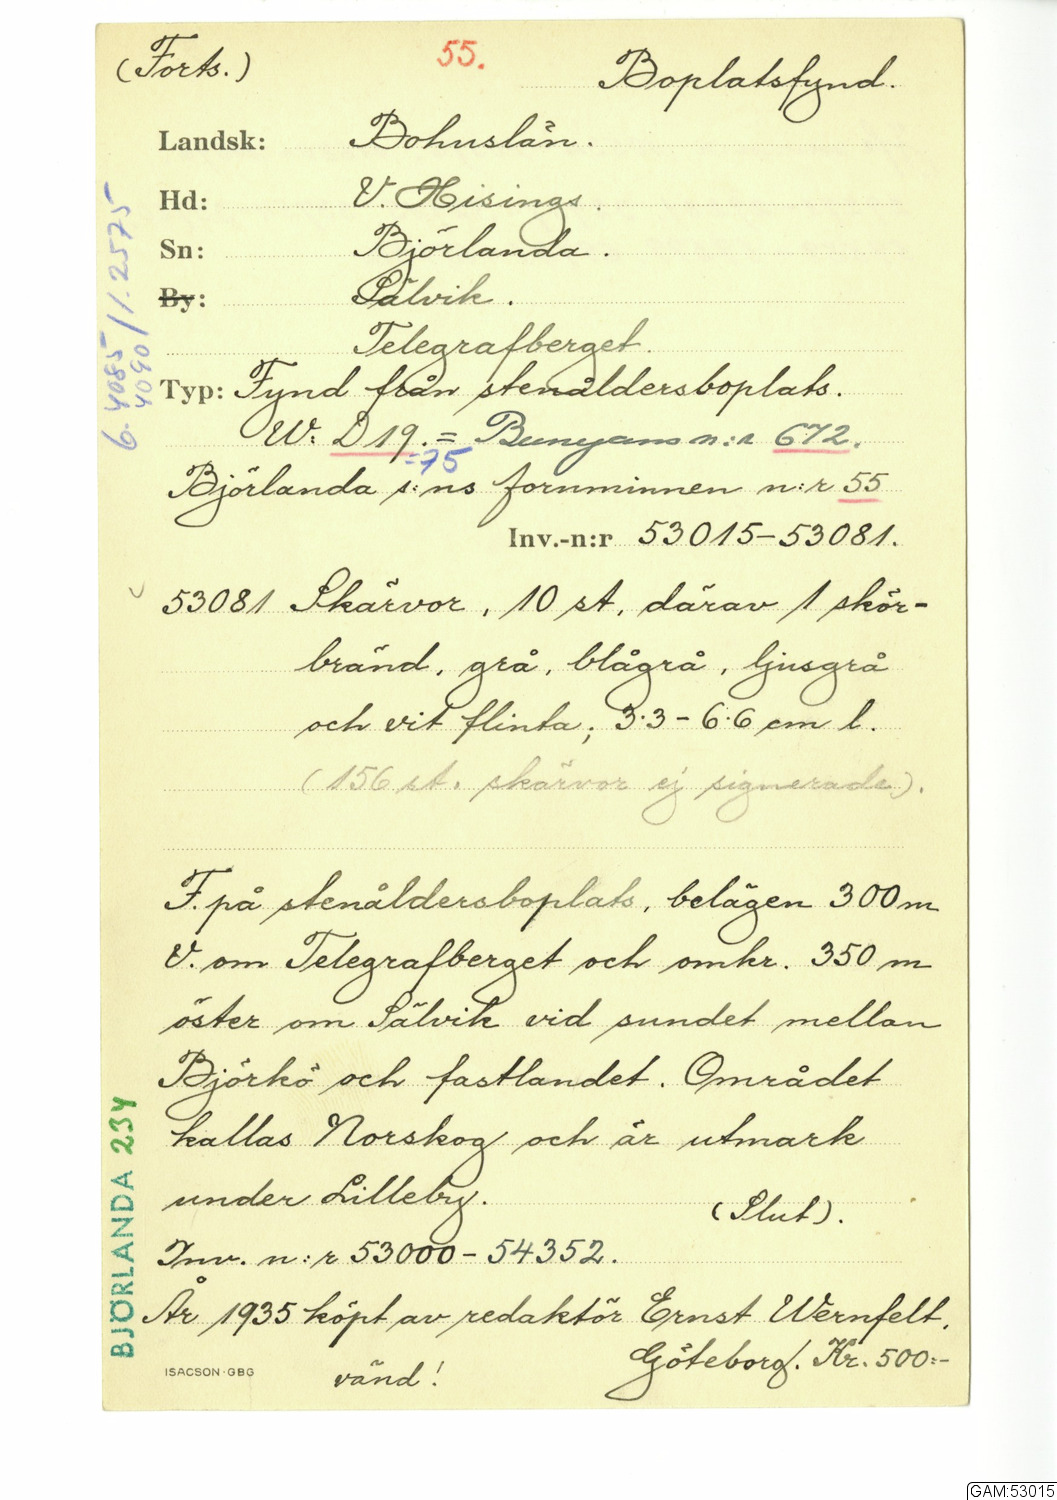 (Forts.)
55.
Boplatsfynd.
Landsk: Bohuslän.
Hd: V. Hisings.
Sn: Björlanda.
By: Sälvik.
Telegrafberget.
Typ: Fynd från stenåldersboplats.
W: D 19. = Bunyans n:r 672.
=75
Björlanda s:ns fornminnen n:r 55
Inv.-n:r 53015-53081.
53081 Skärvor, 10 st, därav 1 skör-
bränd, grå, blågrå, ljusgrå
och vit flinta; 3·3-6·6 cm l.
(156 st. skärvor ej signerade).
F. på stenåldersboplats, belägen 300 m
V. om Telegrafberget och omkr. 350 m
öster om Sälvik vid sundet mellan
Björkö och fastlandet. Området
kallas Norskog och är utmark
under Lilleby.
(Slut).
Inv. n:r 53000-54352.
År 1935 köpt av redaktör Ernst Wernfelt,
Göteborg. Kr. 500:-
vänd!
ISACSON·GBG
BJÖRLANDA 234
4085
4090 / 1.2575
GAM:53015